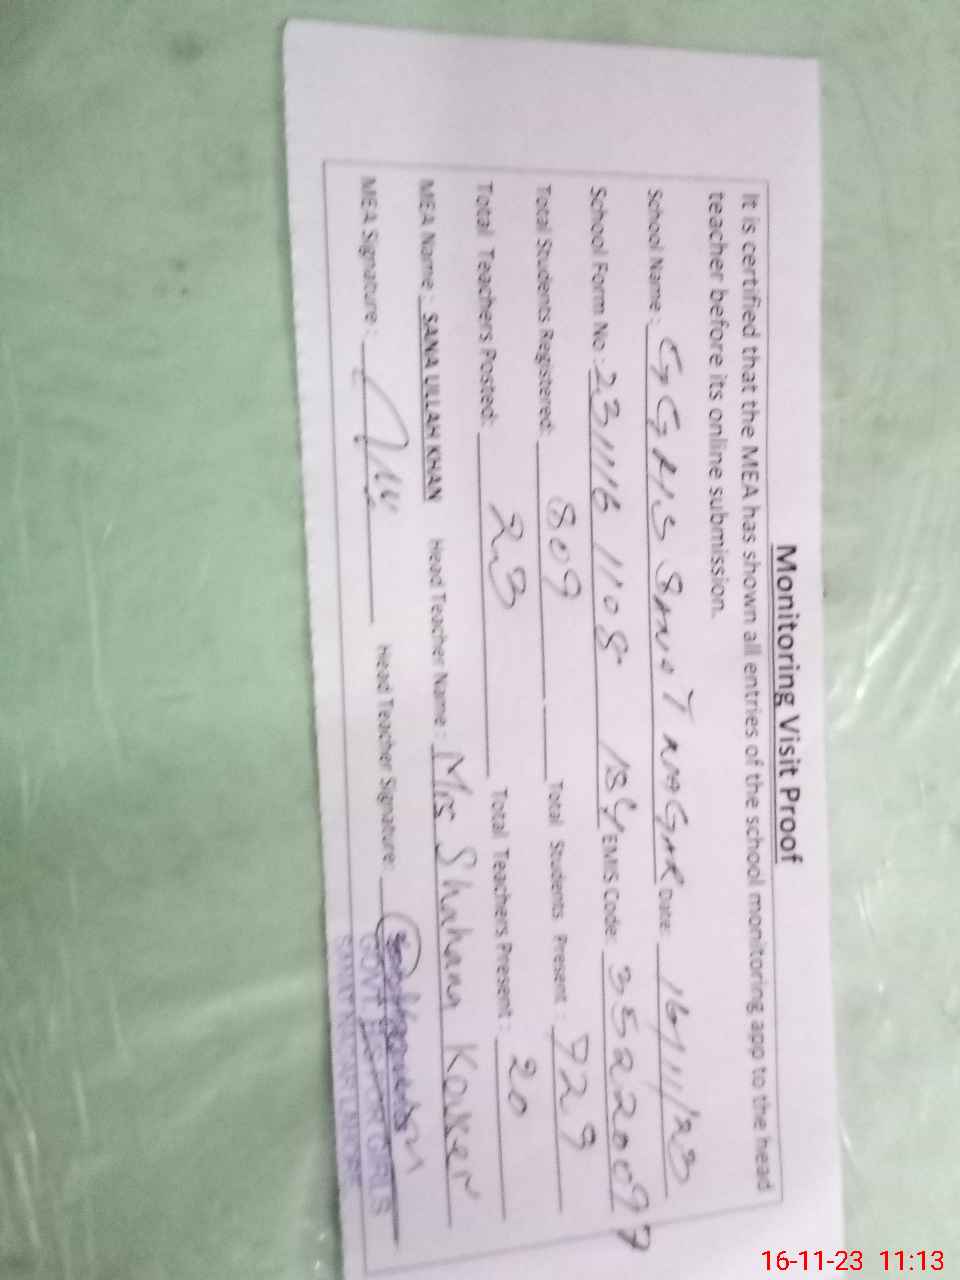 Monitoring Visit Proof
It is certified that the MEA has shown all entries of the school monitoring app to the head
teacher before its online submission.
School Name: GGHS NAGAR Date: 16/11/23
School Form No.: 231116 1108 EMIS Code: 35220097
Total Students Registered: 809 Total Students Present: 729
Total Teachers Posted: 23 Total Teachers Present: 20
MEA Name: SANA ULLAH KHAN Head Teacher Name: Mrs Shahana Kouser
MEA Signature: Head Teacher Signature:
GOVT. GIRLS
LAHORE
16-11-23 11:13